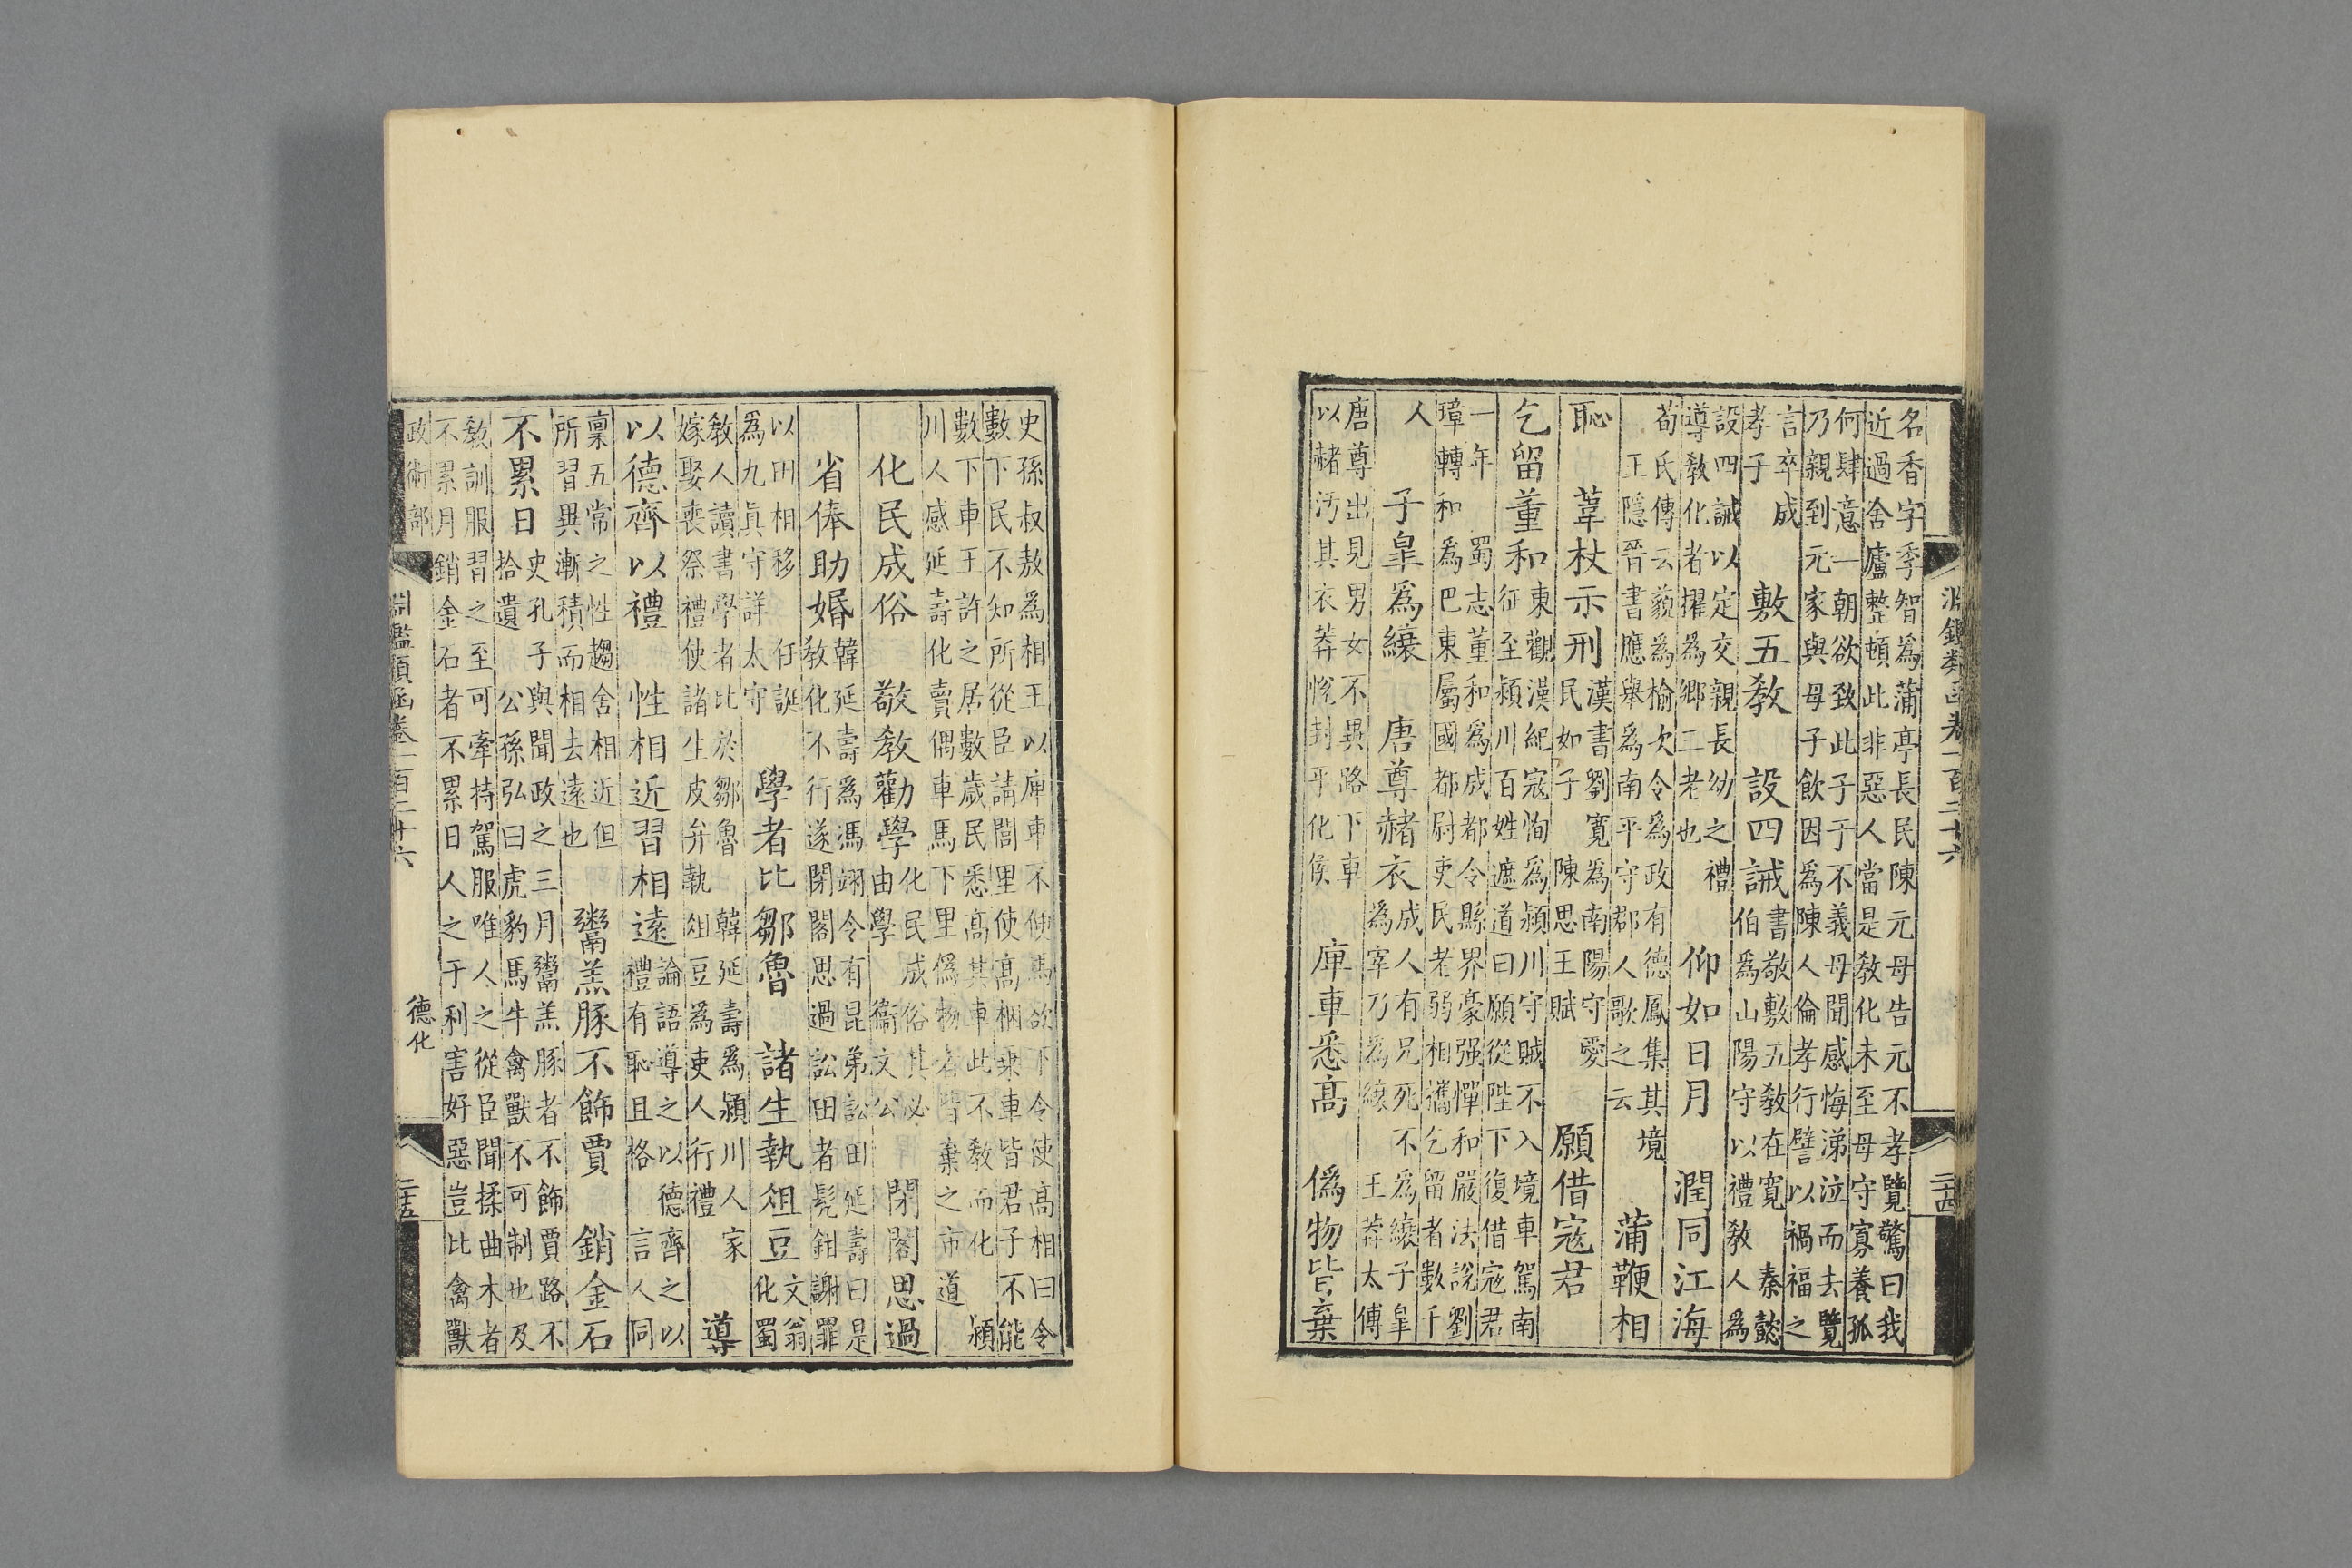 淵鑑類函卷一百二十六
二十四
名香字季智為蒲亭長民陳元母告元不孝覽驚曰我
近過舍廬整頓此非惡人當是教化未至母守寡養孤
何肆意一朝欲致此子于不義母聞感悔涕泣而去覽
乃親到元家與母子飲因為陳人倫孝行譬以禍福之
言卒成
孝子
敷五教 設四誡
書敬敷五教在寬 秦懿
伯為山陽守以禮教人為
設四誡以定交親長幼之禮
導教化者擢為鄉三老也
仰如日月 潤同江海
荀氏傳云藐為榆次令為政有德鳳集其境
王隱晉書應舉為南平守郡人歌之云
蒲鞭相
恥 葦杖示刑
漢書劉寬為南陽守愛
民如子 陳思王賦
願借寇君
乞留董和
東觀漢紀寇恂為潁川守賊不入境車駕南
征至潁川百姓遮道曰願從陛下復借寇君
一年 蜀志董和為成都令縣界豪强憚和嚴法說劉
璋轉和為巴東屬國都尉吏民老弱相攜乞留者數千
人
子皐為縗 唐尊赭衣
成人有兄死不為縗子皐
為宰乃為縗 王莽太傅
唐尊出見男女不異路下車
以赭汚其衣莽悅封平化侯
庳車悉高 偽物皆棄
史孫叔敖為相王以庳車不便馬欲下令使高相曰令
數下民不知所從臣請閭里使高梱乘車皆君子不能
數下車王許之居數歲民悉高其車此不教而化 潁
川人感延壽化賣偶車馬下里偽物者皆棄之市道
化民成俗 敬教勸學
化民成俗其必
由學 衞文公
閉閣思過
省俸助婚
韓延壽為馮翊令有昆弟訟田延壽曰是
教化不行遂閉閣思過訟田者髠鉗謝罪
以田相移 任誕
為九真守詳太守
學者比鄒魯 諸生執俎豆
文翁
化蜀
教人讀書學者比於鄒魯 韓延壽為潁川人家
嫁娶喪祭禮使諸生皮弁執俎豆為吏人行禮
導
以德齊以禮 性相近習相遠
論語導之以德齊之以
禮有恥且格 言人同
稟五常之性趨舍相近但
所習異漸積而相去遠也
鬻羔豚不飾賈 銷金石
不累日
史孔子與聞政之三月鬻羔豚者不飾賈路不
拾遺 公孫弘曰虎豹馬牛禽獸不可制也及
教訓服習之至可牽持駕服唯人之從臣聞揉曲木者
不累月銷金石者不累日人之于利害好惡豈比禽獸
政術部
淵鑑類函卷一百二十六
德化
二十五